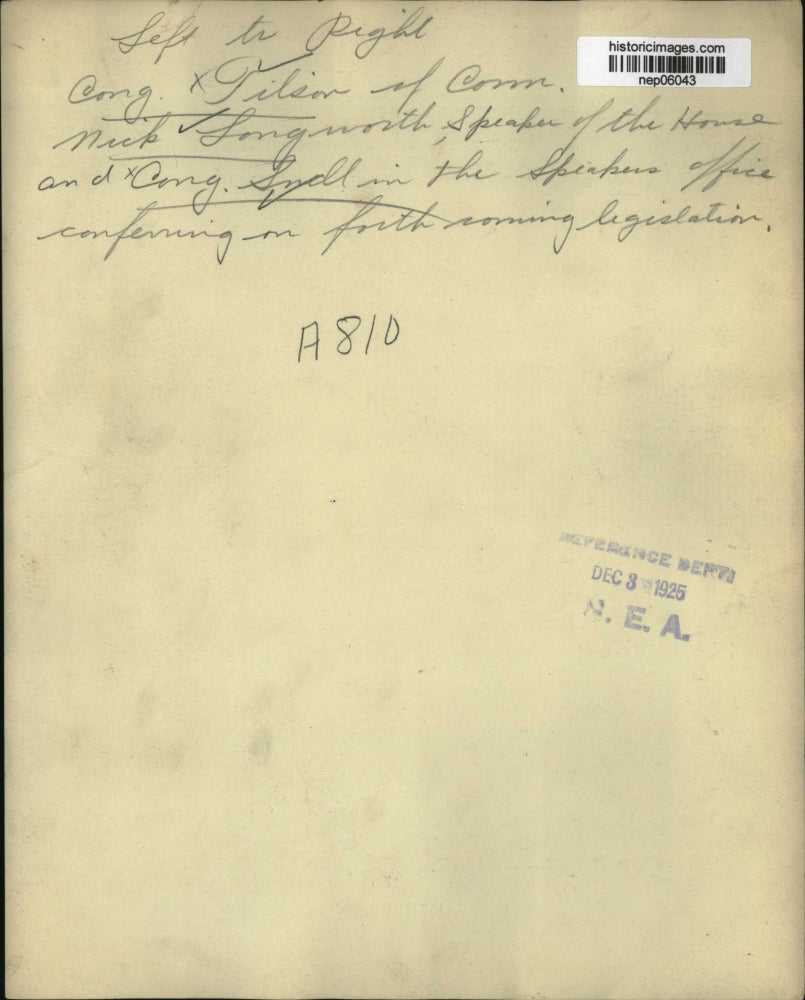 Left to Right
historicimages.com
nep06043
Cong. x Tilson of Conn.
Nick ✓ Longworth, Speaker of the House
and x Cong. Snell in the Speakers office
conferring on forth coming legislation.
A810
REFERENCE DEPT.
DEC 3 1925
N. E. A.